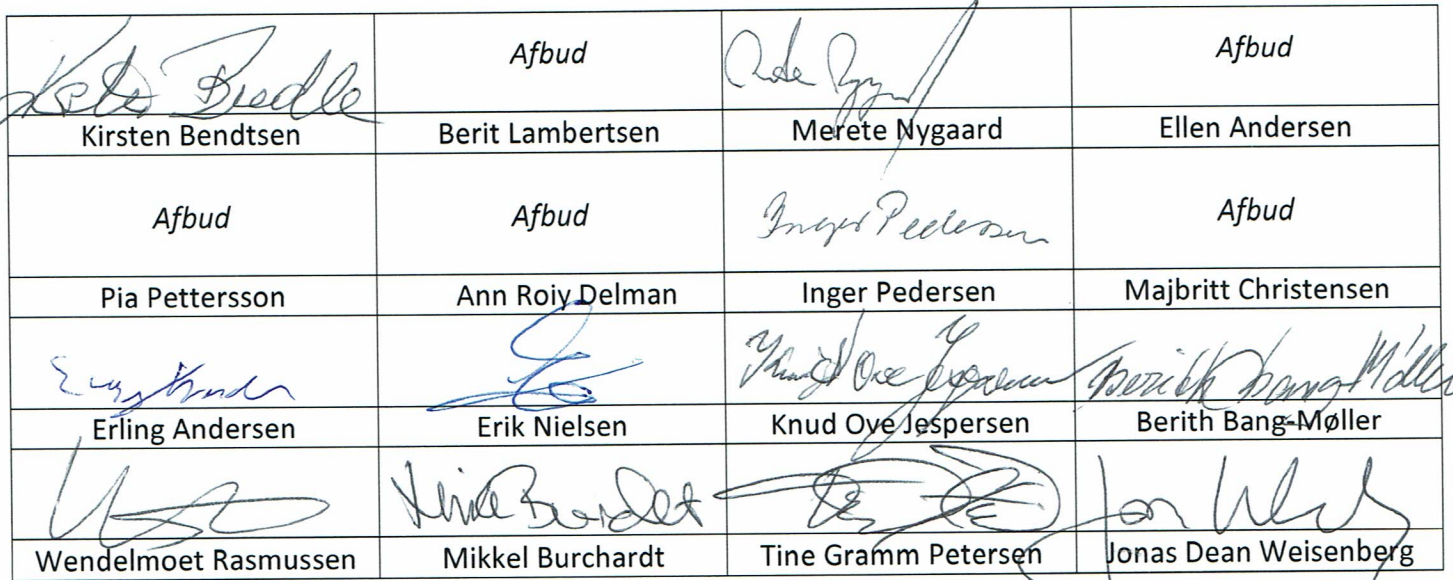 Afbud Afbud
Kirsten Bendtsen Berit Lambertsen Merete Nygaard Ellen Andersen
Afbud Afbud Inger Pedersen Afbud
Pia Pettersson Ann Roiy Delman Inger Pedersen Majbritt Christensen
Knud Ove Jespersen Berith Bang Møller
Erling Andersen Erik Nielsen Knud Ove Jespersen Berith Bang-Møller
Wendelmoet Rasmussen Mikkel Burchardt Tine Gramm Petersen Jonas Dean Weisenberg